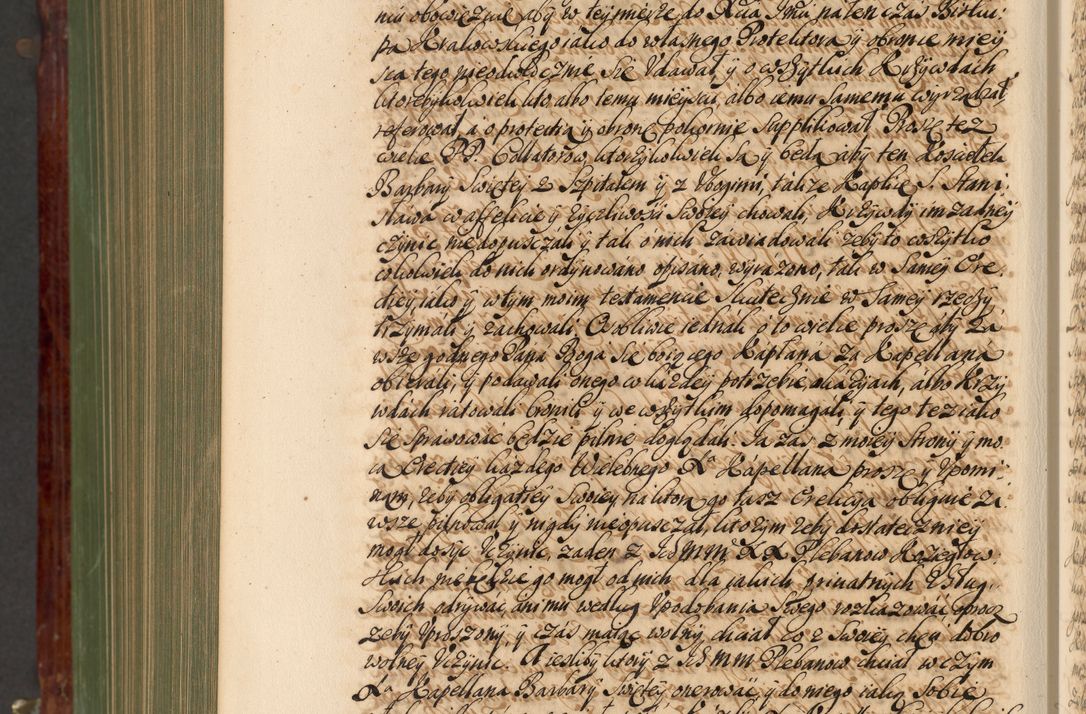 niu obowiązał aby w tey mierze do Xcia Jmci na ten czas Bisku:
pa Krakowskiego iako do własnego Protektora y obrońcę miey
sca tego nieodwłocznie się udawał, y o wszytkich Krzywdach
ktorebykolwiek kto albo temu mieyscu, albo iemu samemu wyrządzał,
referował, a o protectią y obronę pokornie supplikował. Proszę też
wielce PP. Collatorow, ktorzykolwiek są y będą, aby ten Kosciołek
Barbary Swiętey z Szpitalem y z Vbogimi, także Kaplicę S. Stani:
sława w affekcie y życzliwosci swoiey chowali, Krzywdy im żadney
czynić nie dopuszczali y tak o nich zawiadowali żeby to wszytko
cokolwiek do nich ordynowano, opisano, wyrażono, tak w samey Ere:
ctiey, iako y w tym moim testamencie skutecznie w samey rzeczy
trzymali y zachowali. Osobliwie iednak o to wielce proszę aby za
wsze godnego Pana Boga się boiącego Kapłana za Kapellana
obierali, y podawali onego w każdey potrzebie okazyiach, albo Krzy
wdach ratowali bronili y we wszytkim dopomagali, y tego też iako
się sprawować będzie pilnie doglądali. Ja zaś z moiey strony y mo
ią Erectiey każdego Wielebnego Xa Kapellana proszę y vpomi:
nam, żeby obligatiey swoiey na ktorą go tasz Erekcya obliguie za
wsze pilnował y nigdy nieopuszczał, ktorym żeby dostateczniey
mogł dosyć vczynić, żaden z Ich MM XX Plebanow Koziegłow:
skich nie będzie go mogł od nich dla iakich priuatnych vsług
swoich odrywać ani mu według vpodobania swego rozkazować, oprocz
żeby vproszony y czas maiąc wolny, chciał co z swoiey chęci dobro
wolney vczynić. A iesliby ktory z Ich MM Plebanow chciał w czym
Xa Kapellana Barbary Swiętey onerować, y do niego iako sobie